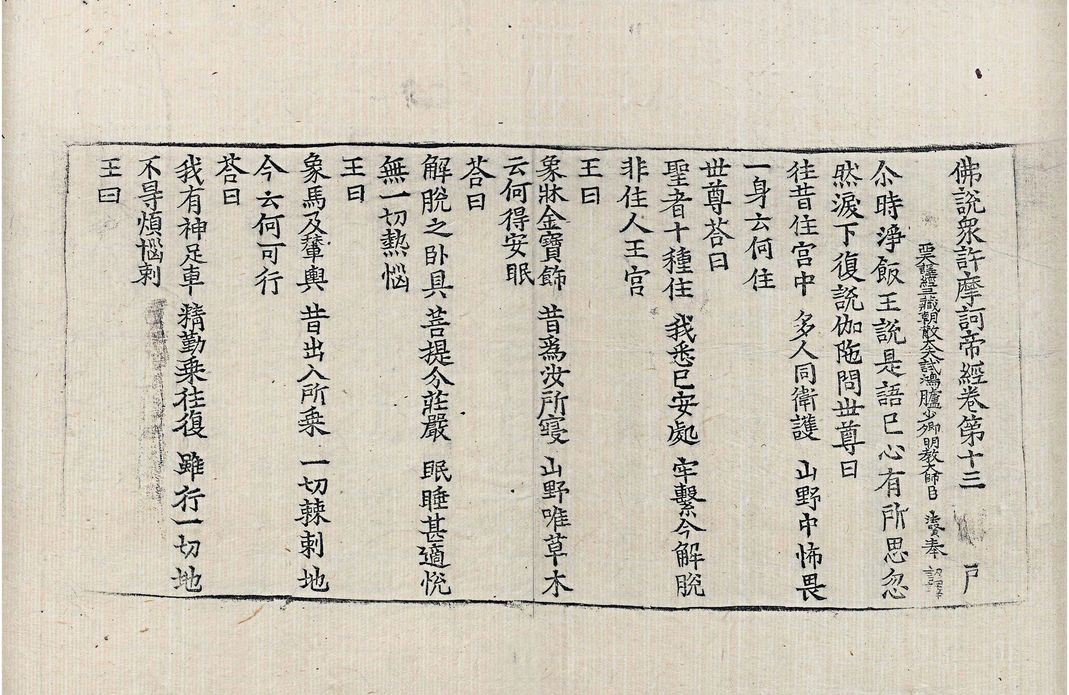 佛說衆許摩訶帝經卷第十三 戸
西天譯經三藏朝散大夫試鴻臚少卿明教大師臣 法賢奉 詔譯
尒時淨飯王說是語已心有所思忽
然淚下復說伽陁問世尊曰
徃昔住宮中 多人同衛護 山野中怖畏
一身云何住
世尊荅曰
聖者十種住 我悉已安處 牢繫今解脫
非住人王宮
王曰
象牀金寶飾 昔爲汝所寝 山野唯草木
云何得安眠
荅曰
解脫之卧具 菩提分莊嚴 眠睡甚適悅
無一切熱惱
王曰
象馬及輦輿 昔出入所乘 一切棘刺地
今云何可行
荅曰
我有神足車 精勤乗往復 雖行一切地
不㝵煩惱刺
王曰